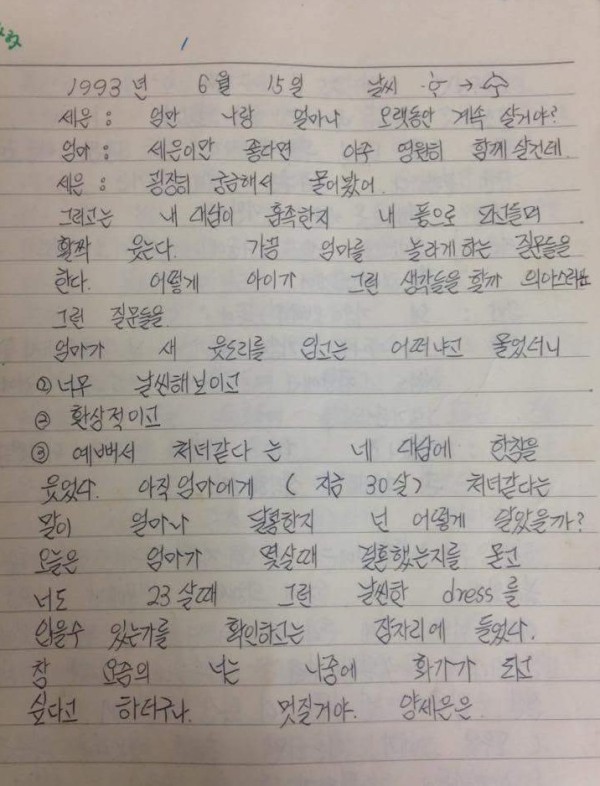 1993년 6월 15일 날씨
세은 : 엄만 나랑 얼마나 오랫동안 계속 살거야?
엄마 : 세은이만 좋다면 아주 영원히 함께 살건데.
세은 : 굉장히 궁금해서 물어봤어.
그러고는 내 대답이 흡족한지 내 품으로 파고들며
활짝 웃는다. 가끔 엄마를 놀라게 하는 질문들을
한다. 어떻게 아이가 그런 생각들을 할까 의아스러운
그런 질문들을.
엄마가 새 웃도리를 입고는 어떠냐고 물었더니
① 너무 날씬해보이고
② 환상적이고
③ 예뻐서 처녀같다 는 네 대답에 한참을
웃었다. 아직 엄마에게 ( 지금 30살) 처녀같다는
말이 얼마나 달콤한지 넌 어떻게 알았을까?
오늘은 엄마가 몇살때 결혼했는지를 묻고
너도 23살때 그런 날씬한 dress를
입을수 있는가를 확인하고는 잠자리에 들었다.
참 요즘의 너는 나중에 화가가 되고
싶다고 하더구나. 멋질거야. 양세은은.